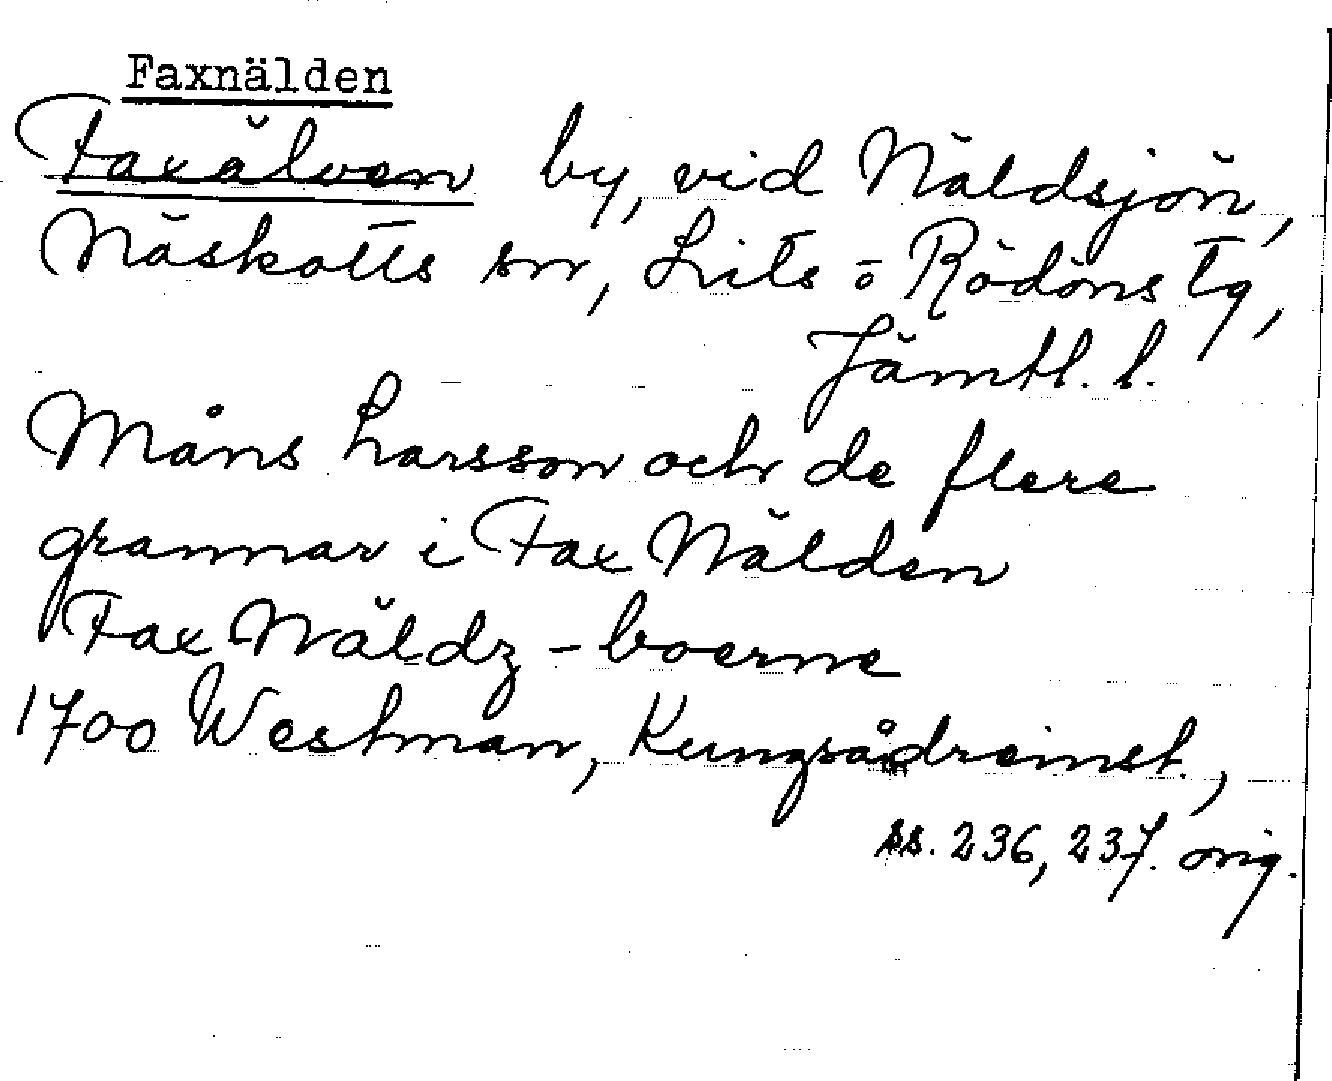 Faxnälden
Faxälven by, vid Näldsjön,
Näskotts sn, Lits o Rödöns tg,
Jämtl. l.
Måns Larsson och de flere
grannar i Fax Nälden
Fax Näldz-boerne
1700 Westman, Kungsådreinst.,
ss. 236, 237. orig.